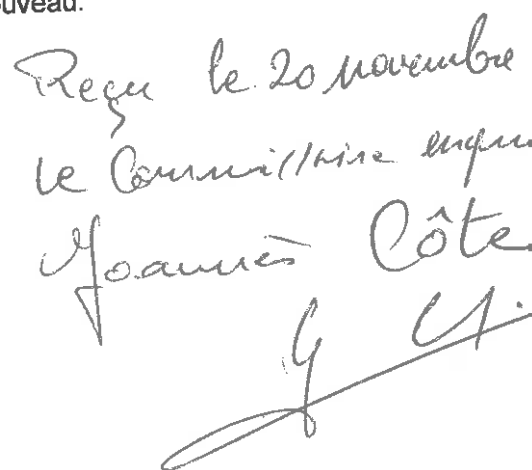 ouveau.
Reçu le 20 novembre
le Commissaire enqu
Joannès Côte